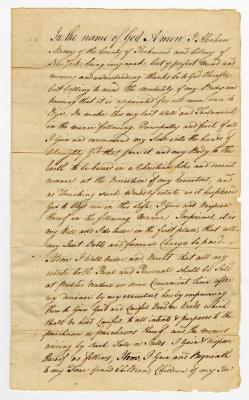 In the name of God Amen I Abraham
of the County of Richmond and Colony of
New York being weak but of perfect mind and
memory and understanding thanks be to God therefore
but calling to mind the mortality of my Body and
knowing that it is appointed for all men once to
Dye, Do make this my last Will and Testament
in the manner following, Principally and first of all
I Give and recommend my Soul into the hands of
Almighty God that gave it and my Body to the
Earth to be buried in a Christian like and decent
manner at the Discretion of my Executors and
as Touching such Worldly Estate as it hath pleased
God to bless me in this Life, I Give and Dispose
thereof in the following Manner Imprimis it is
my Will and I do order in the first place, that all
my Just Debts and funeral Charges be paid
Item I Will order and direct that all my
estate both Real and Personal shall be Sold
at publick Vendue in some Convenient time after
my decease by my executors hereby empowering
them to Give Good and Lawful Deed or Deeds which
shall be held Lawful to all intents & purposes to the
purchaser or purchasers thereof and the monies
arising by such Sale or Sales I Give & dispose
thereof as follows, Item, I Give and Bequeath
to my Four grand Children Children of my